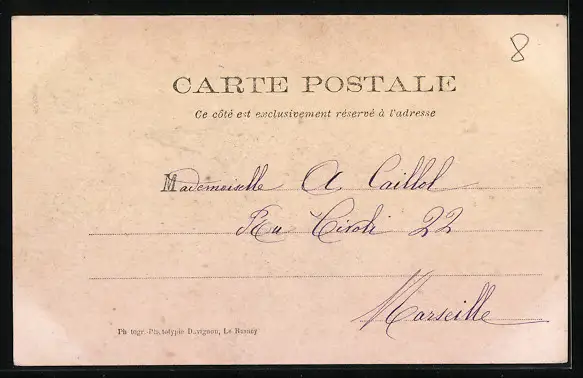 8
CARTE POSTALE
Ce côté est exclusivement réservé à l'adresse
Mademoiselle A Caillol
Rue Tivoli 22
Marseille
Photogr.-Phototypie Davignon, Le Raincy